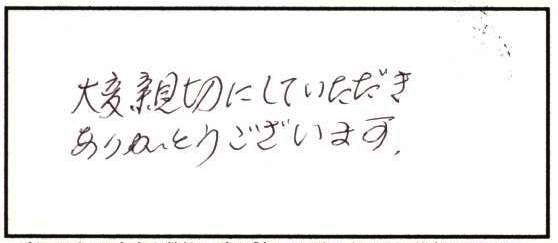 大変親切にしていただき
ありがとうございます.